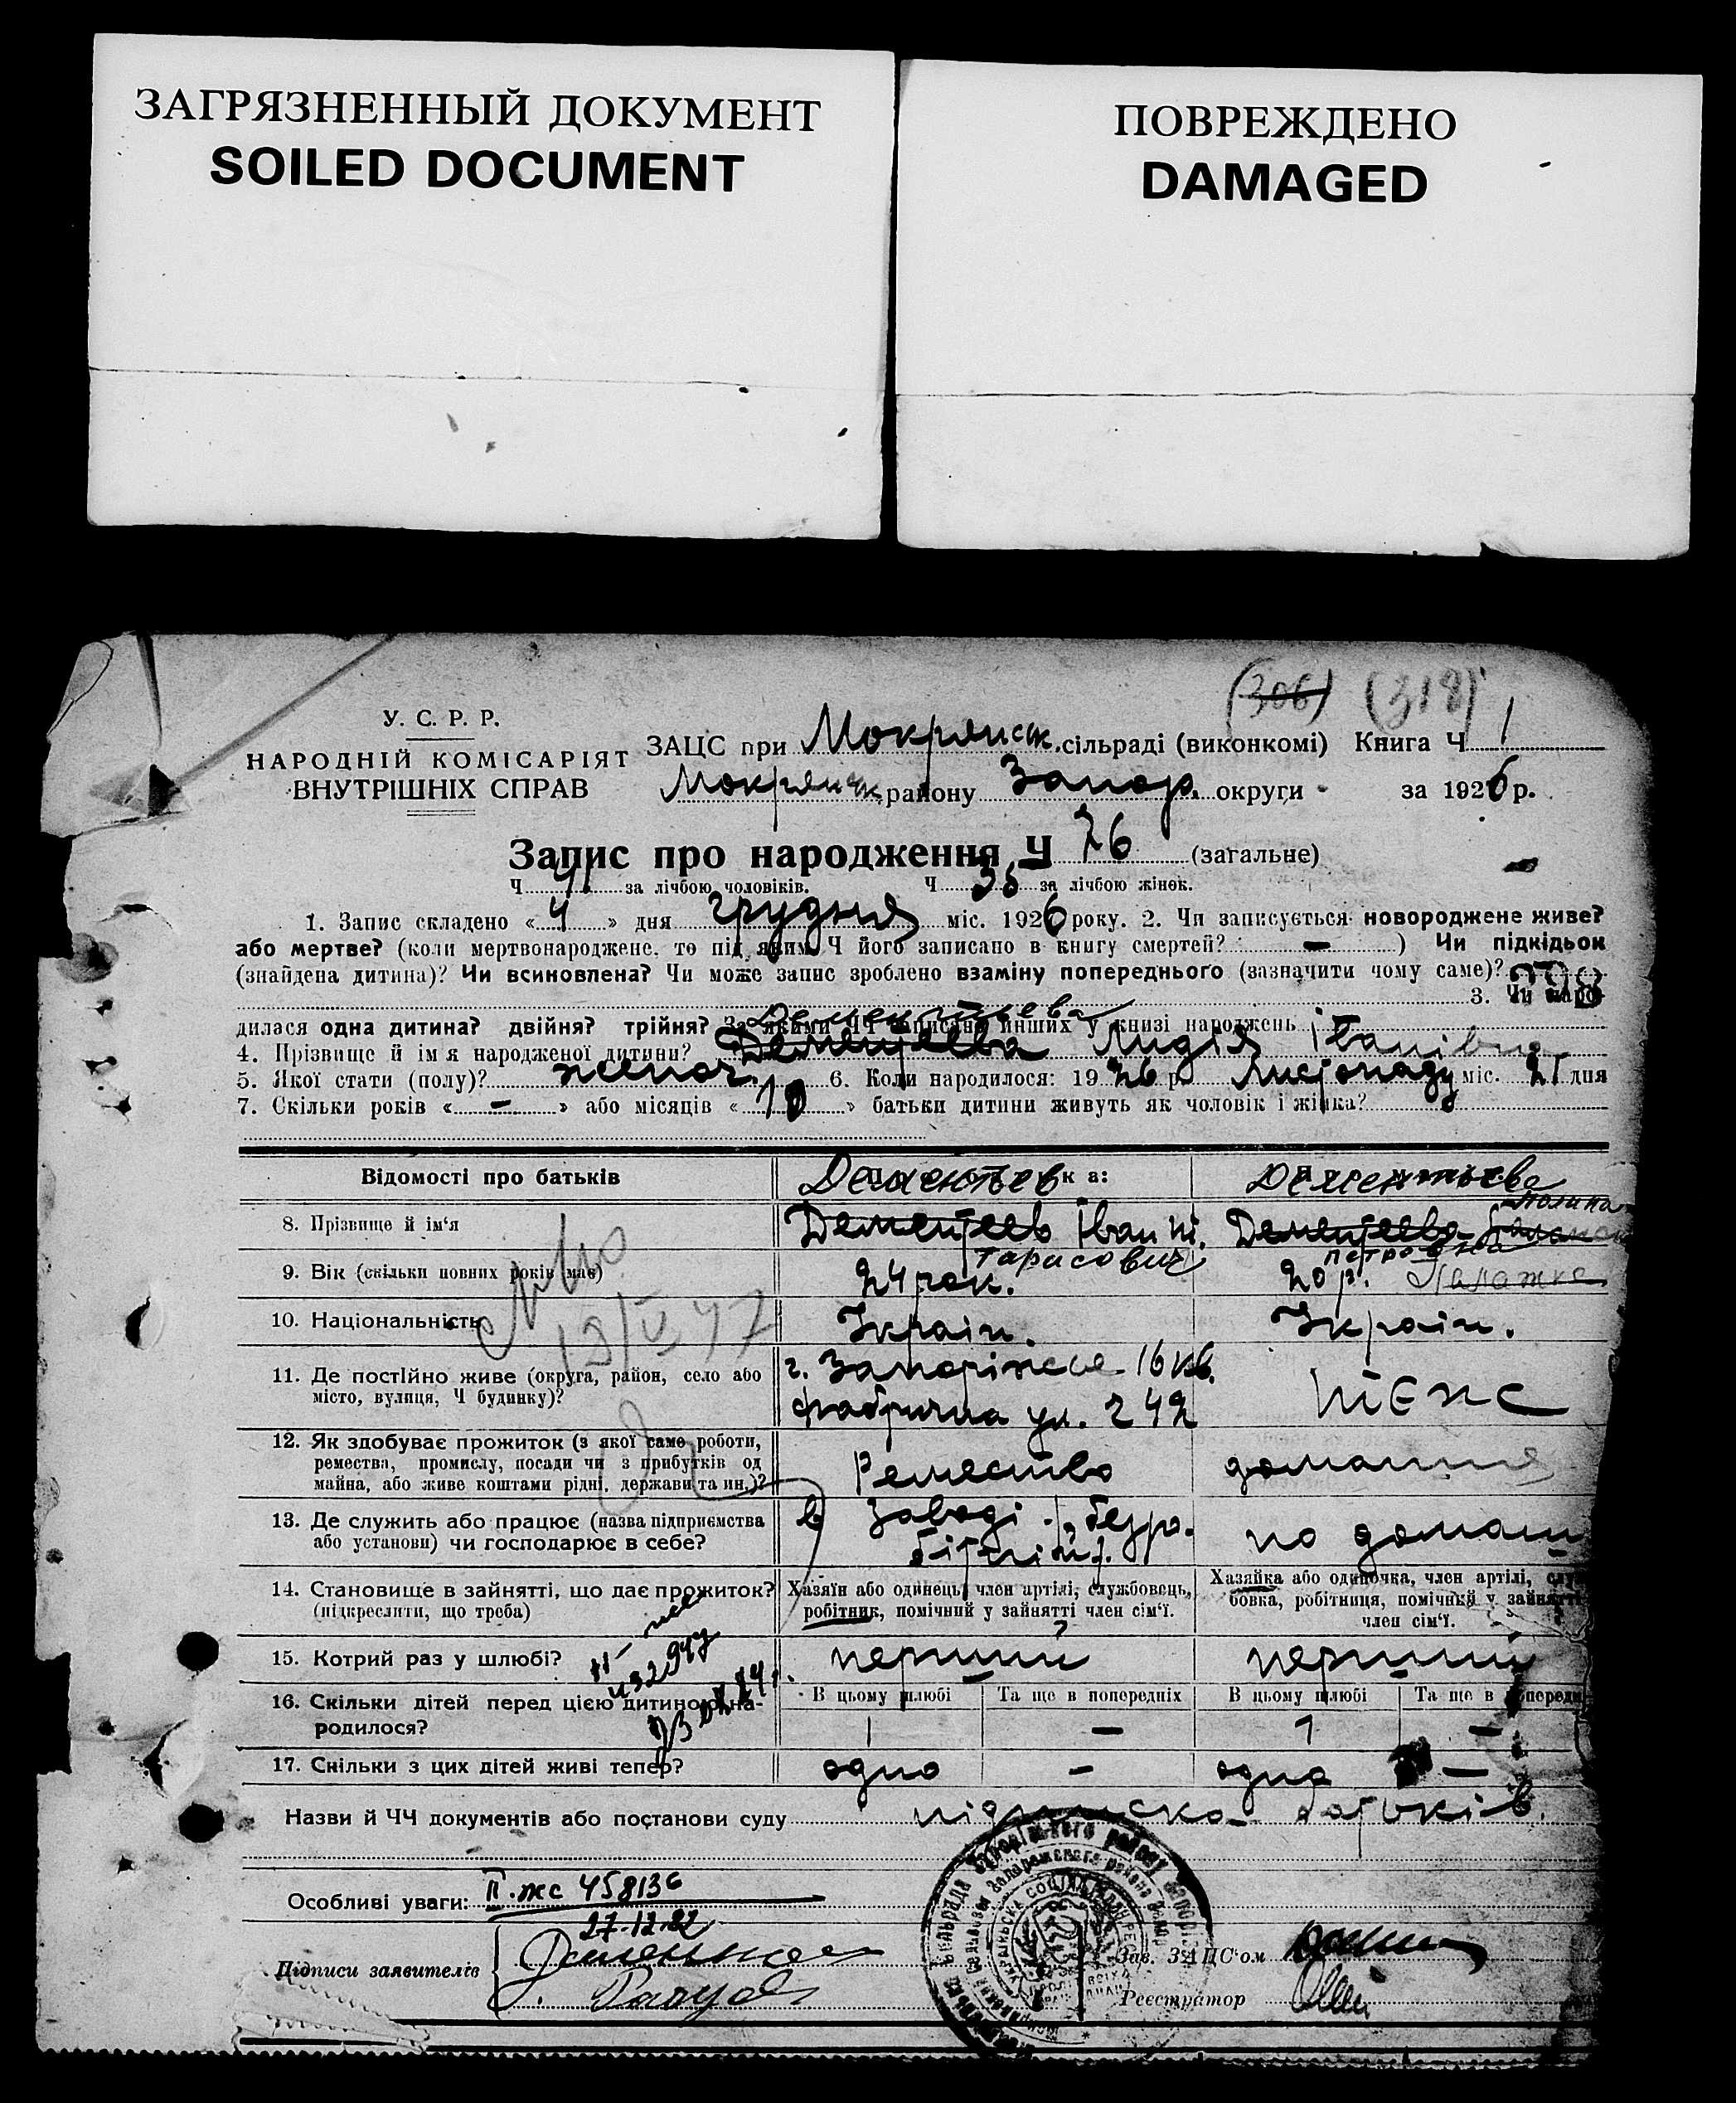 ЗАГРЯЗНЕННЫЙ ДОКУМЕНТ
SOILED DOCUMENT
ПОВРЕЖДЕНО
DAMAGED
(306) (318)
У. С. Р. Р.
НАРОДНІЙ КОМІСАРІЯТ
ВНУТРІШНІХ СПРАВ
ЗАЦС при Мокрянск. сільраді (виконкомі) Книга Ч 1
Мокрянск району Запор. округи за 1926 р.
Запис про народження Ч 76 (загальне)
Ч 41 за лічбою чоловіків. Ч 35 за лічбою жінок.
1. Запис складено «4» дня грудня міс. 1926 року. 2. Чи записується новороджене живе?
або мертве? (коли мертвонароджене, то під яким Ч його записано в книгу смертей? — ) Чи підкідьок
(знайдена дитина)? Чи всиновлена? Чи може запис зроблено взаміну попереднього (зазначити чому саме)?
3. Чи наро-
дилася одна дитина? двійня? трійня? За якими ЧЧ записано инших у книзі народжень
Дементьева
4. Прізвище й ім'я народженої дитини? Дементєева Лидія Іванівна
5. Якої стати (полу)? жіноч. 6. Коли народилося: 1926 р. Листопаду міс. 21 дня
7. Скільки років «—» або місяців «10» батьки дитини живуть як чоловік і жінка?
Відомості про батьків
Дементьев
Дементьева
8. Прізвище й ім'я
Дементєев Іван
Тарасович
Дементєева
Полина
Петровна
Палажка
9. Вік (скільки повних років має)
24 рок.
20 р.
10. Національність
Україн.
Україн.
11. Де постійно живе (округа, район, село або
місто, вулиця, Ч будинку)?
г. Запоріжже 16 кв.
фабрична ул. 249
тєж
12. Як здобуває прожиток (з якої саме роботи,
ремества, промислу, посади чи з прибутків од
майна, або живе коштами рідні, держави та ин.)?
Ремество
домашня
13. Де служить або працює (назва підприємства
або установи) чи господарює в себе?
в Заводі безро-
бітний
по домаш
14. Становище в зайнятті, що дає прожиток?
(підкреслити, що треба)
Хазяїн або одинець, член артілі, службовець,
робітник, помічний у зайнятті член сім'ї.
Хазяйка або одиночка, член артілі, служ-
бовка, робітниця, помічний у зайнятті
член сім'ї.
15. Котрий раз у шлюбі?
перший
перший
16. Скільки дітей перед цією дитиною на-
родилося?
В цьому шлюбі Та ще в попередніх В цьому шлюбі Та ще в попередн
1 — 1 —
17. Скільки з цих дітей живі тепер?
одно — одна —
Назви й ЧЧ документів або постанови суду підписка батьків.
Особливі уваги: II-жс 458136
27-12-82
Підписи заявителів
Зав. ЗАЦС'ом
Реєстратор